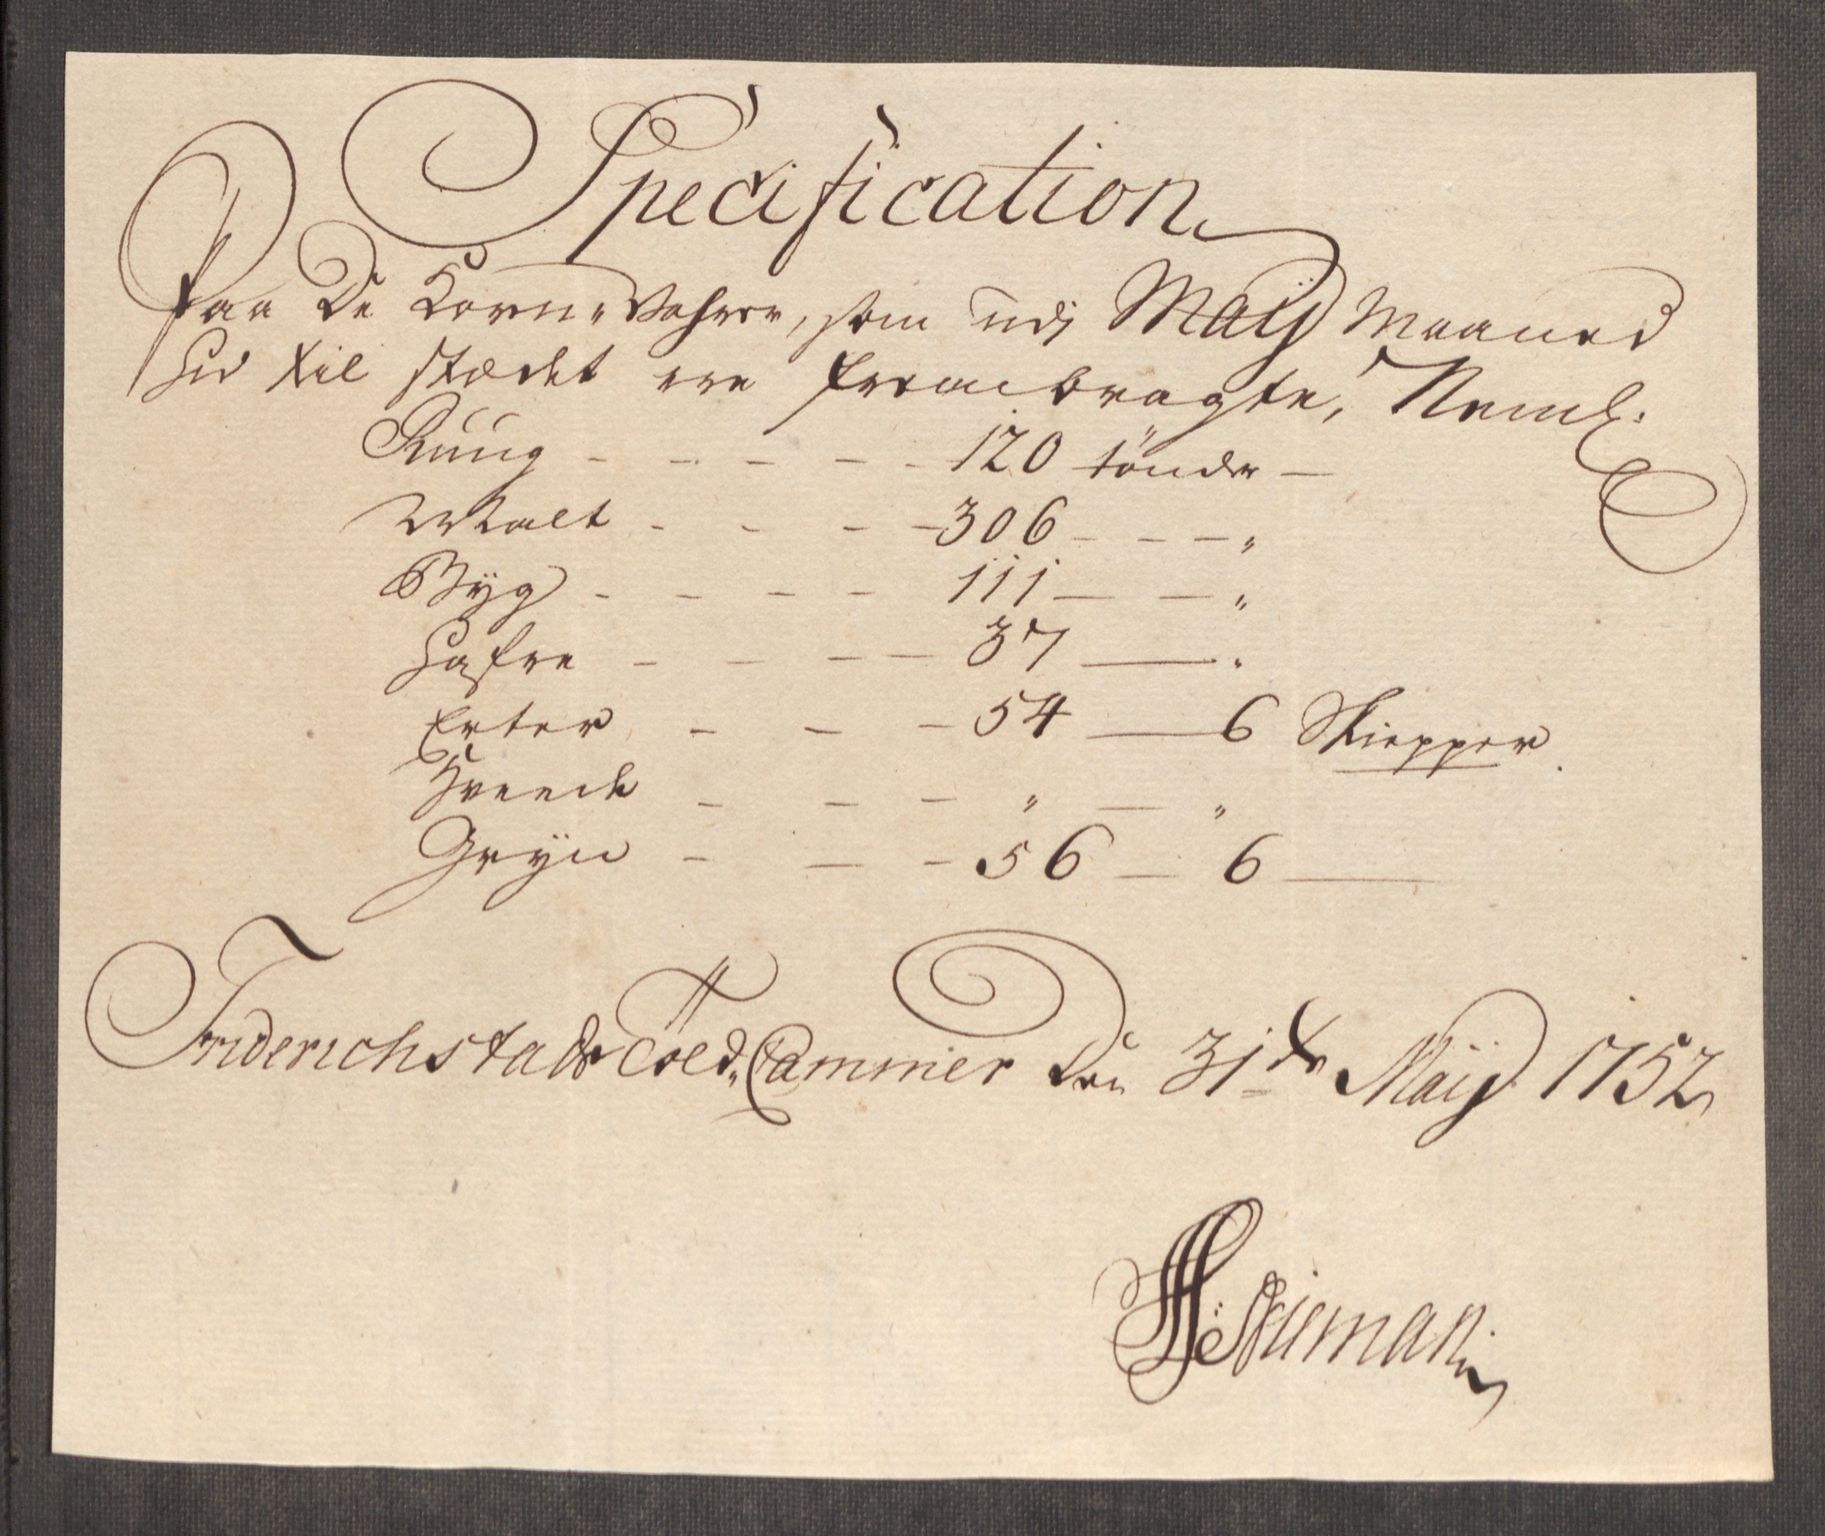 Specification
Paa De Korn-Vahrer, som udj Maij Maaned
hid til stædet ere frembragte, Neml.
Rüüg - - - - - 120 tönder —
Malt - - - - 306 - - - "
Byg - - - - 111 — — "
Hafre - - - - 37 — "
Erter - - - 54 — 6 Skiepper
Hveede - - - " — "
Grÿn - - - 56 — 6 —
Friderichstads Told-Cammer Den 31te Maij 1752